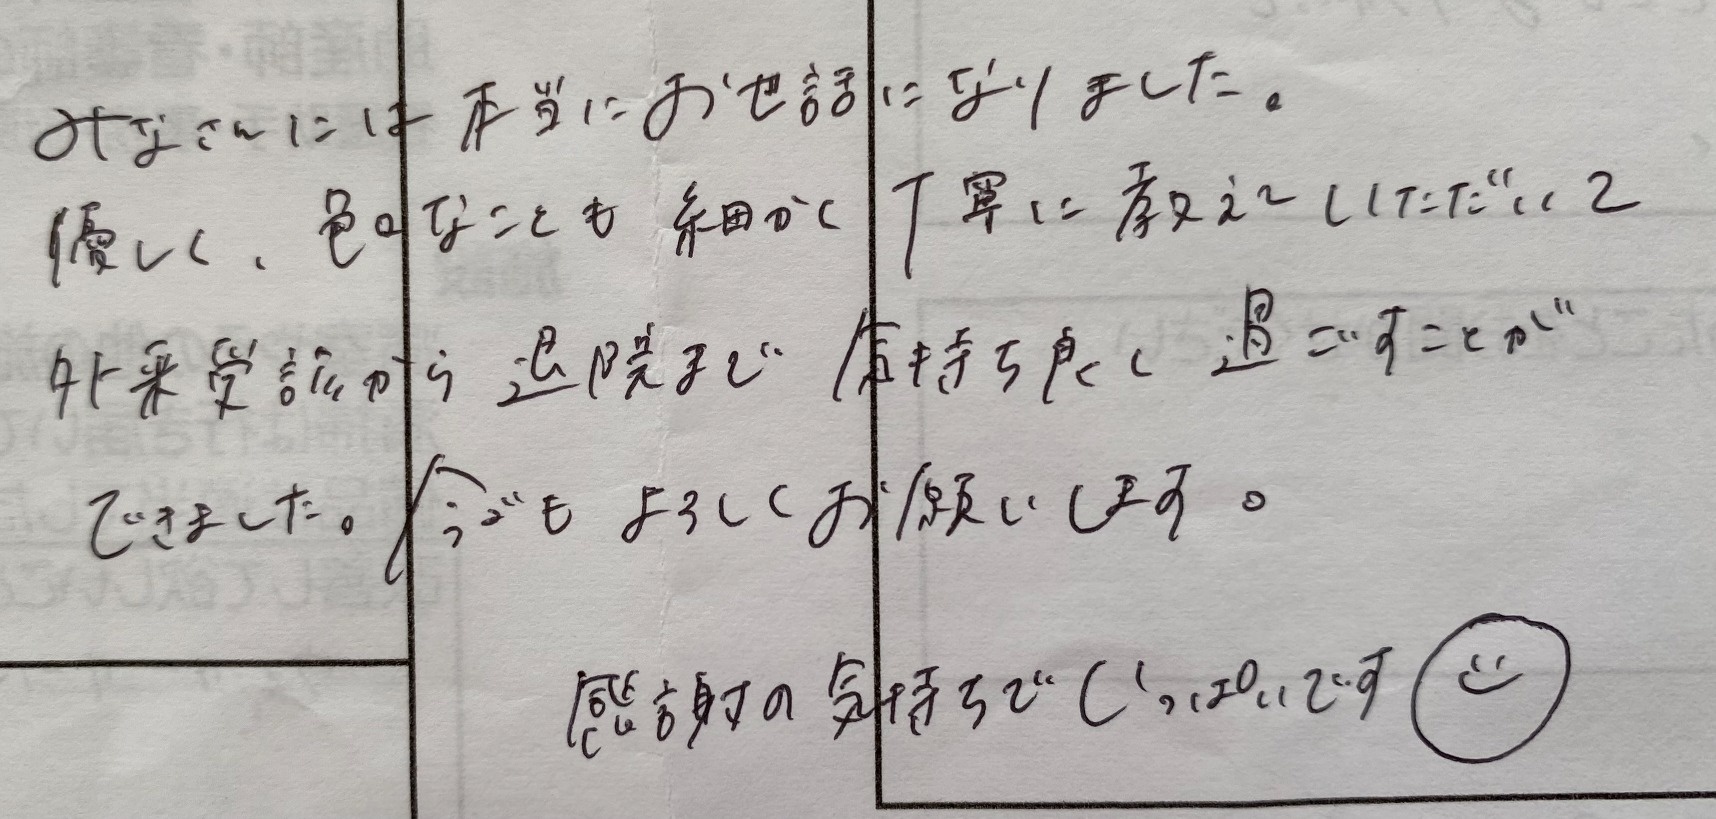 みなさんには本当にお世話になりました。
優しく、色々なことも細かく丁寧に教えていただいて
外来受診から退院まで気持ち良く過ごすことが
できました。今でもよろしくお願いします。
感謝の気持ちでいっぱいです